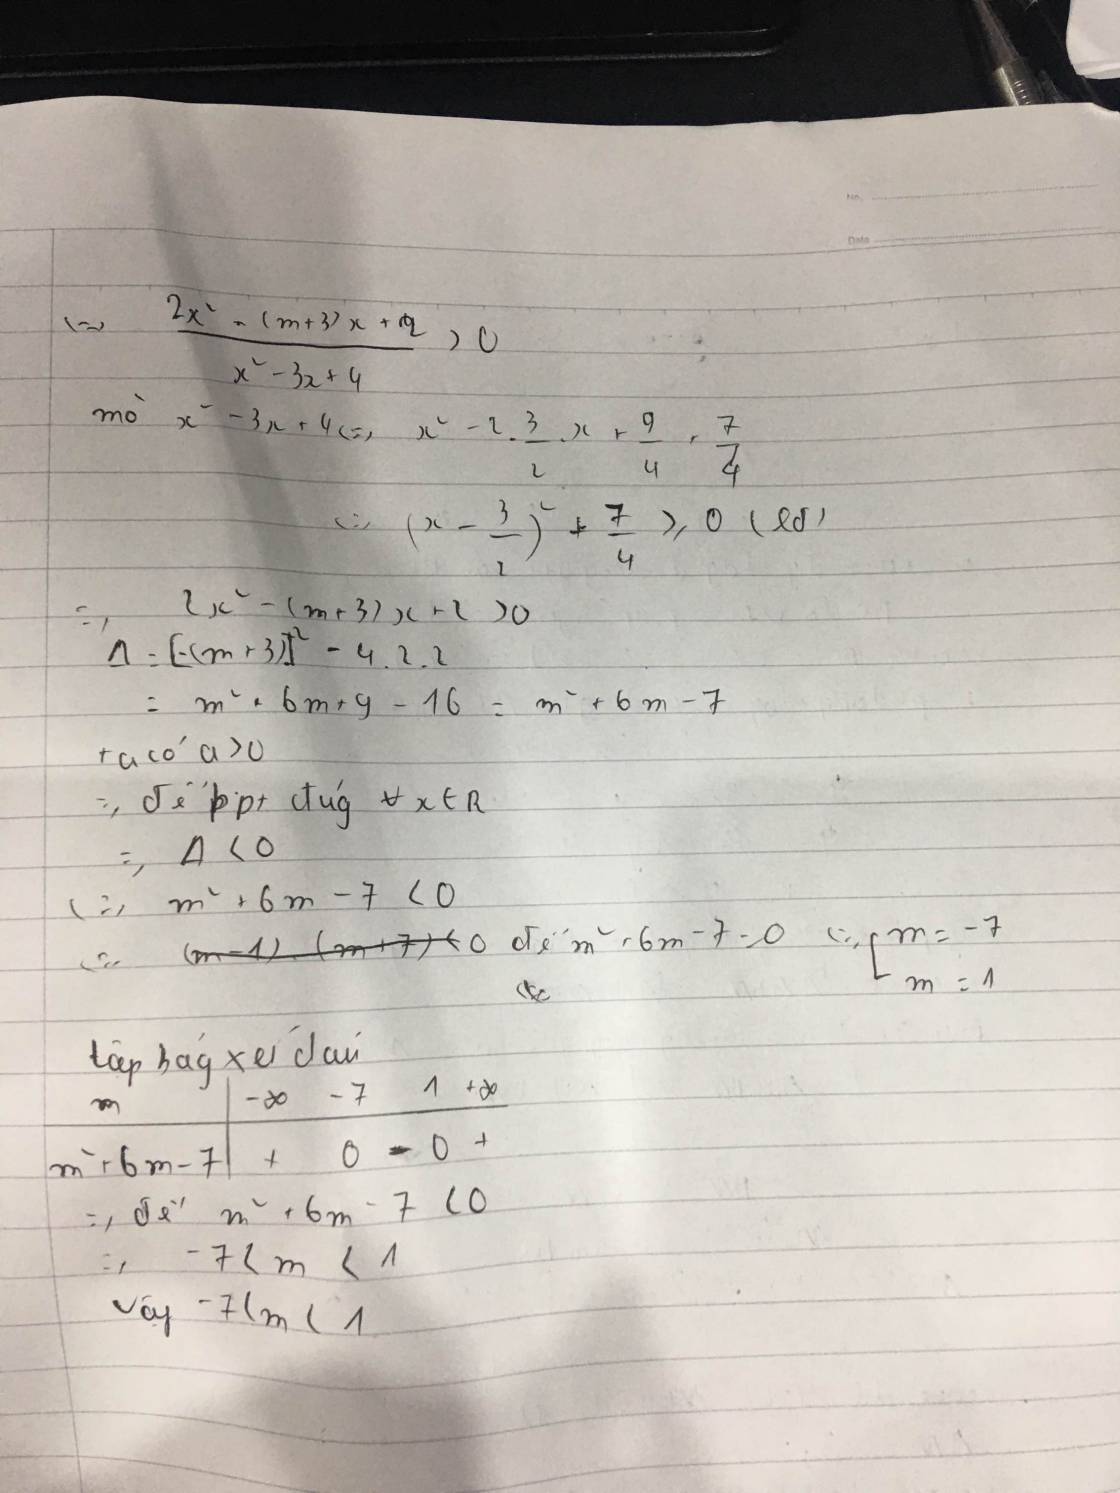 No.
Date
<=> (2x² - (m+3)x + 2)/(x² - 3x + 4) > 0
mà x² - 3x + 4 <=> x² - 2.3/2.x + 9/4 + 7/4
<=> (x - 3/2)² + 7/4 ≥ 0 (lđ)
=> 2x² - (m+3)x + 2 > 0
Δ = [-(m+3)]² - 4.2.2
= m² + 6m + 9 - 16 = m² + 6m - 7
ta có a > 0
=> để bpt đúg ∀ x ∈ R
=> Δ < 0
<=> m² + 6m - 7 < 0
<=> (m-1).(m+7) < 0 để m² + 6m - 7 = 0 <=> [ m = -7
m = 1
lập bảg xét dấu
m | -∞ -7 1 +∞
m² + 6m - 7 | + 0 - 0 +
=> để m² + 6m - 7 < 0
=> -7 < m < 1
vậy -7 < m < 1